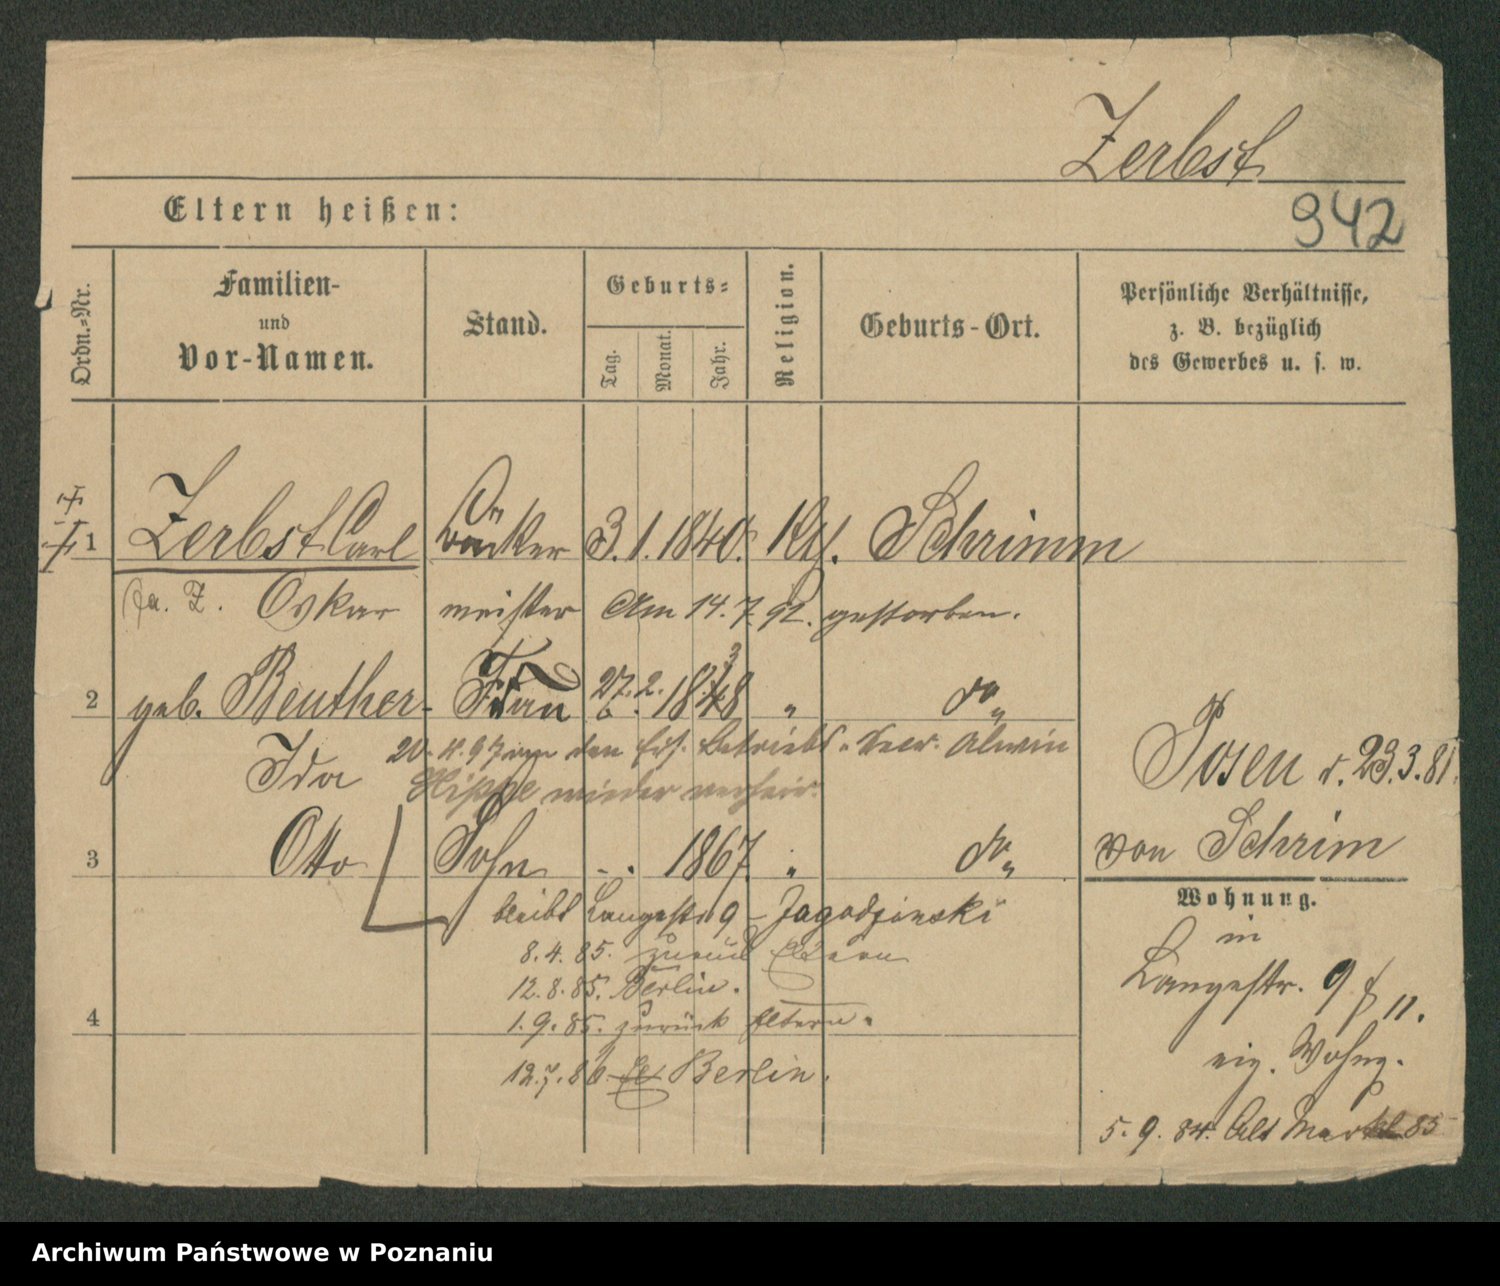 Zerbst
Eltern heißen:
942
Ordn.-Nr.
Familien-
und
Vor-Namen.
Stand.
Geburts-
Tag.
Monat.
Jahr.
Religion.
Geburts-Ort.
Persönliche Verhältnisse,
z. B. bezüglich
des Gewerbes u. s. w.
1 Zerbst Carl Bäcker 3. 1. 1840. Schrimm
Oskar meister Am 14. 7. 92. gestorben.
2 geb. Beuther Frau 27. 2. 1848 " do "
Ida 20. 4. 97 den Betriebs-Secr. Alwin
Hippe wieder verheir.
3 Otto Sohn - . 1867. " do "
bleibt Langestr. 9 - Jagodzinski
8. 4. 85. zurück Eltern
12. 8. 85. Berlin.
1. 9. 85. zurück Eltern.
4
12. 7. 86. Berlin.
Posen d. 23. 3. 81.
von Schrim
Wohnung.
in
Langestr. 9 II.
eig. Wohng.
5. 9. 84. Alt Markt 85
Archiwum Państwowe w Poznaniu